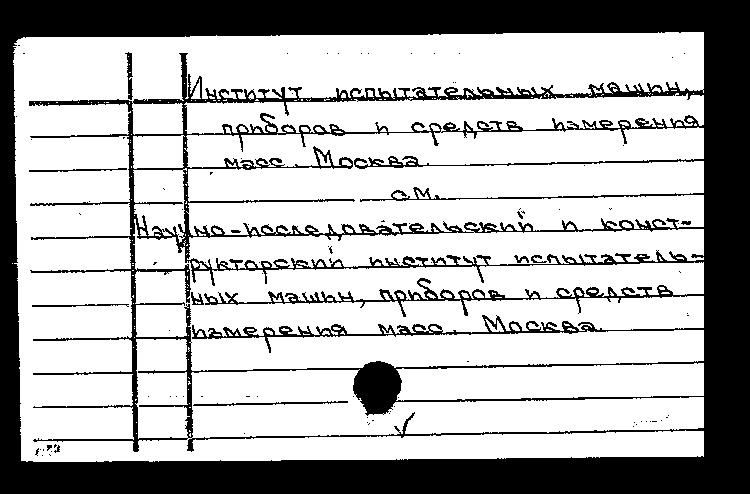 Институт испытательных машин,
приборов и средств измерения
масс. Москва.
см.
Научно-исследовательский и конст-
рукторский институт испытатель-
ных машин, приборов и средств
измерения масс. Москва.